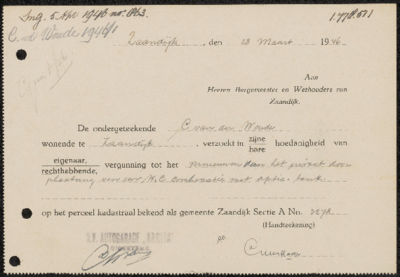 Ing. 5 Apr 1946 no. 863.
1.778.511
C. v.d. Woude 1946/1
Zaandijk, den 13 Maart 1946
Aan
Heeren Burgemeester en Wethouders van
Zaandijk.
De ondergeteekende C. van der Woude
wonende te Zaandijk, verzoekt in zijne hoedanigheid van
hare
eigenaar, vergunning tot het vernieuwen van het privaat door
rechthebbende,
plaatsing van een W.C. met septic-tank
op het perceel kadastraal bekend als gemeente Zaandijk Sectie A No.
(Handteekening)
N.V. AUTOGARAGE